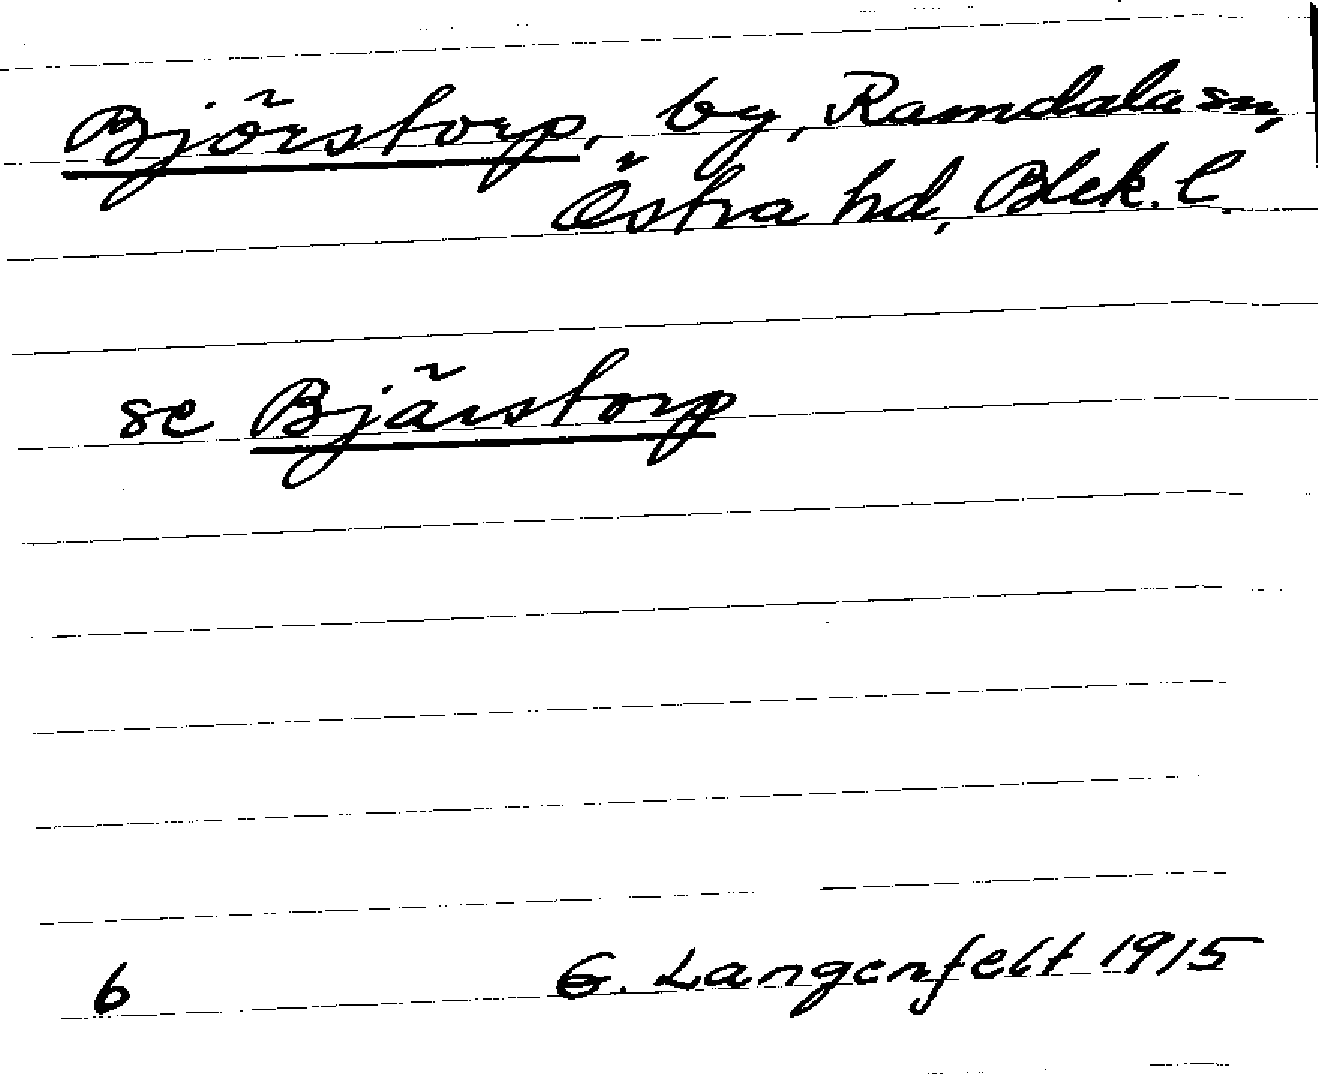 Björstorp, by, Ramdala sn,
Östra hd, Blek. l.
se Bjärstorp
6 G. Langenfelt 1915